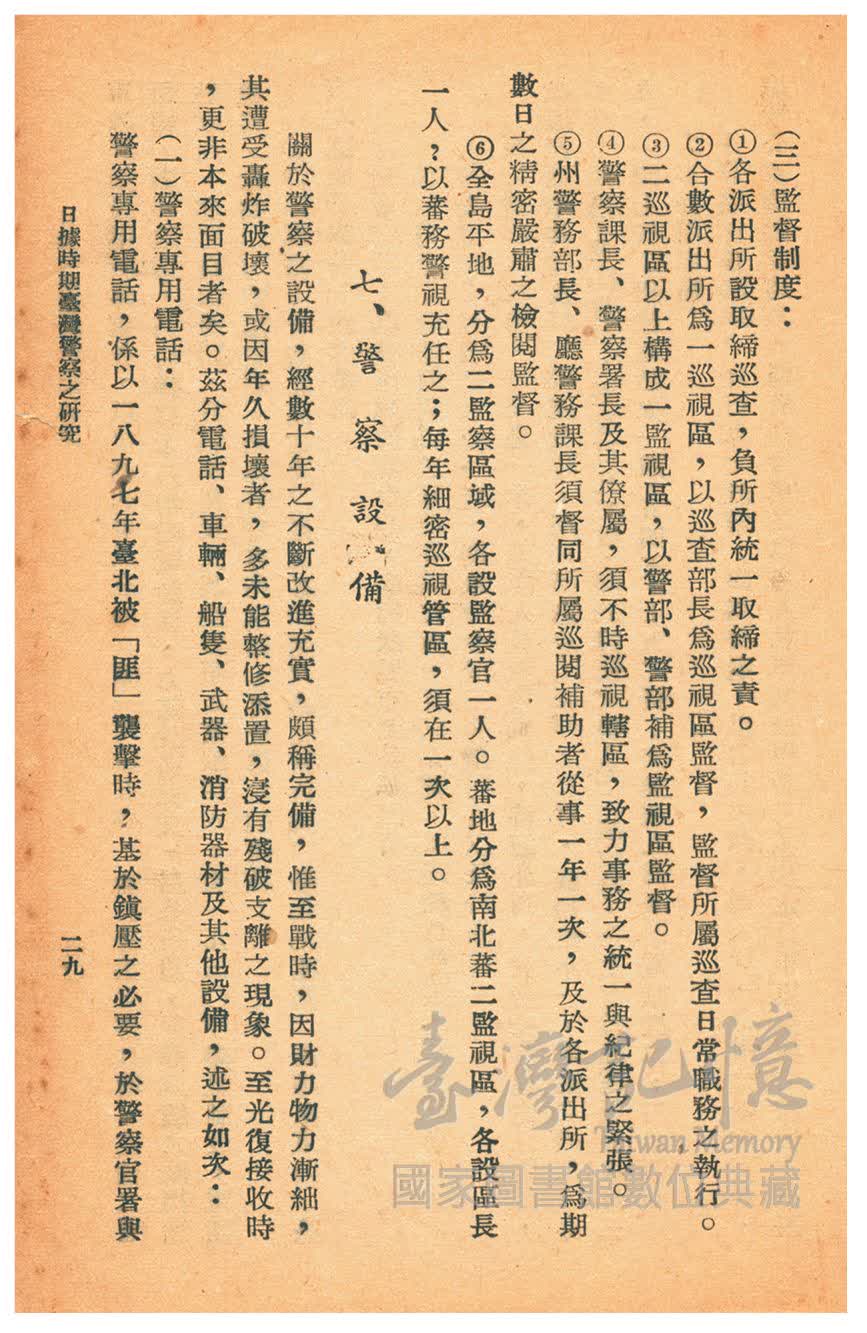 （三）監督制度：
①各派出所設取締巡查，負所內統一取締之責。
②合數派出所爲一巡視區，以巡查部長爲巡視區監督，監督所屬巡查日常職務之執行。
③二巡視區以上構成一監視區，以警部、警部補爲監視區監督。
④警察課長、警察署長及其僚屬，須不時巡視轄區，致力事務之統一與紀律之緊張。
⑤州警務部長、廳警務課長須督同所屬巡閱補助者從事一年一次，及於各派出所，爲期
數日之精密嚴肅之檢閱監督。
⑥全島平地，分爲二監察區域，各設監察官一人。蕃地分爲南北蕃二監視區，各設區長
一人，以蕃務警視充任之；每年細密巡視管區，須在一次以上。
七、警察設備
關於警察之設備，經數十年之不斷改進充實，頗稱完備，惟至戰時，因財力物力漸絀，
其遭受轟炸破壞，或因年久損壞者，多未能整修添置，寖有殘破支離之現象。至光復接收時
，更非本來面目者矣。茲分電話、車輛、船隻、武器、消防器材及其他設備，述之如次：
（一）警察專用電話：
警察專用電話，係以一八九七年臺北被「匪」襲擊時，基於鎭壓之必要，於警察官署與
日據時期臺灣警察之研究
二九
臺灣記憶
Taiwan Memory
國家圖書館數位典藏